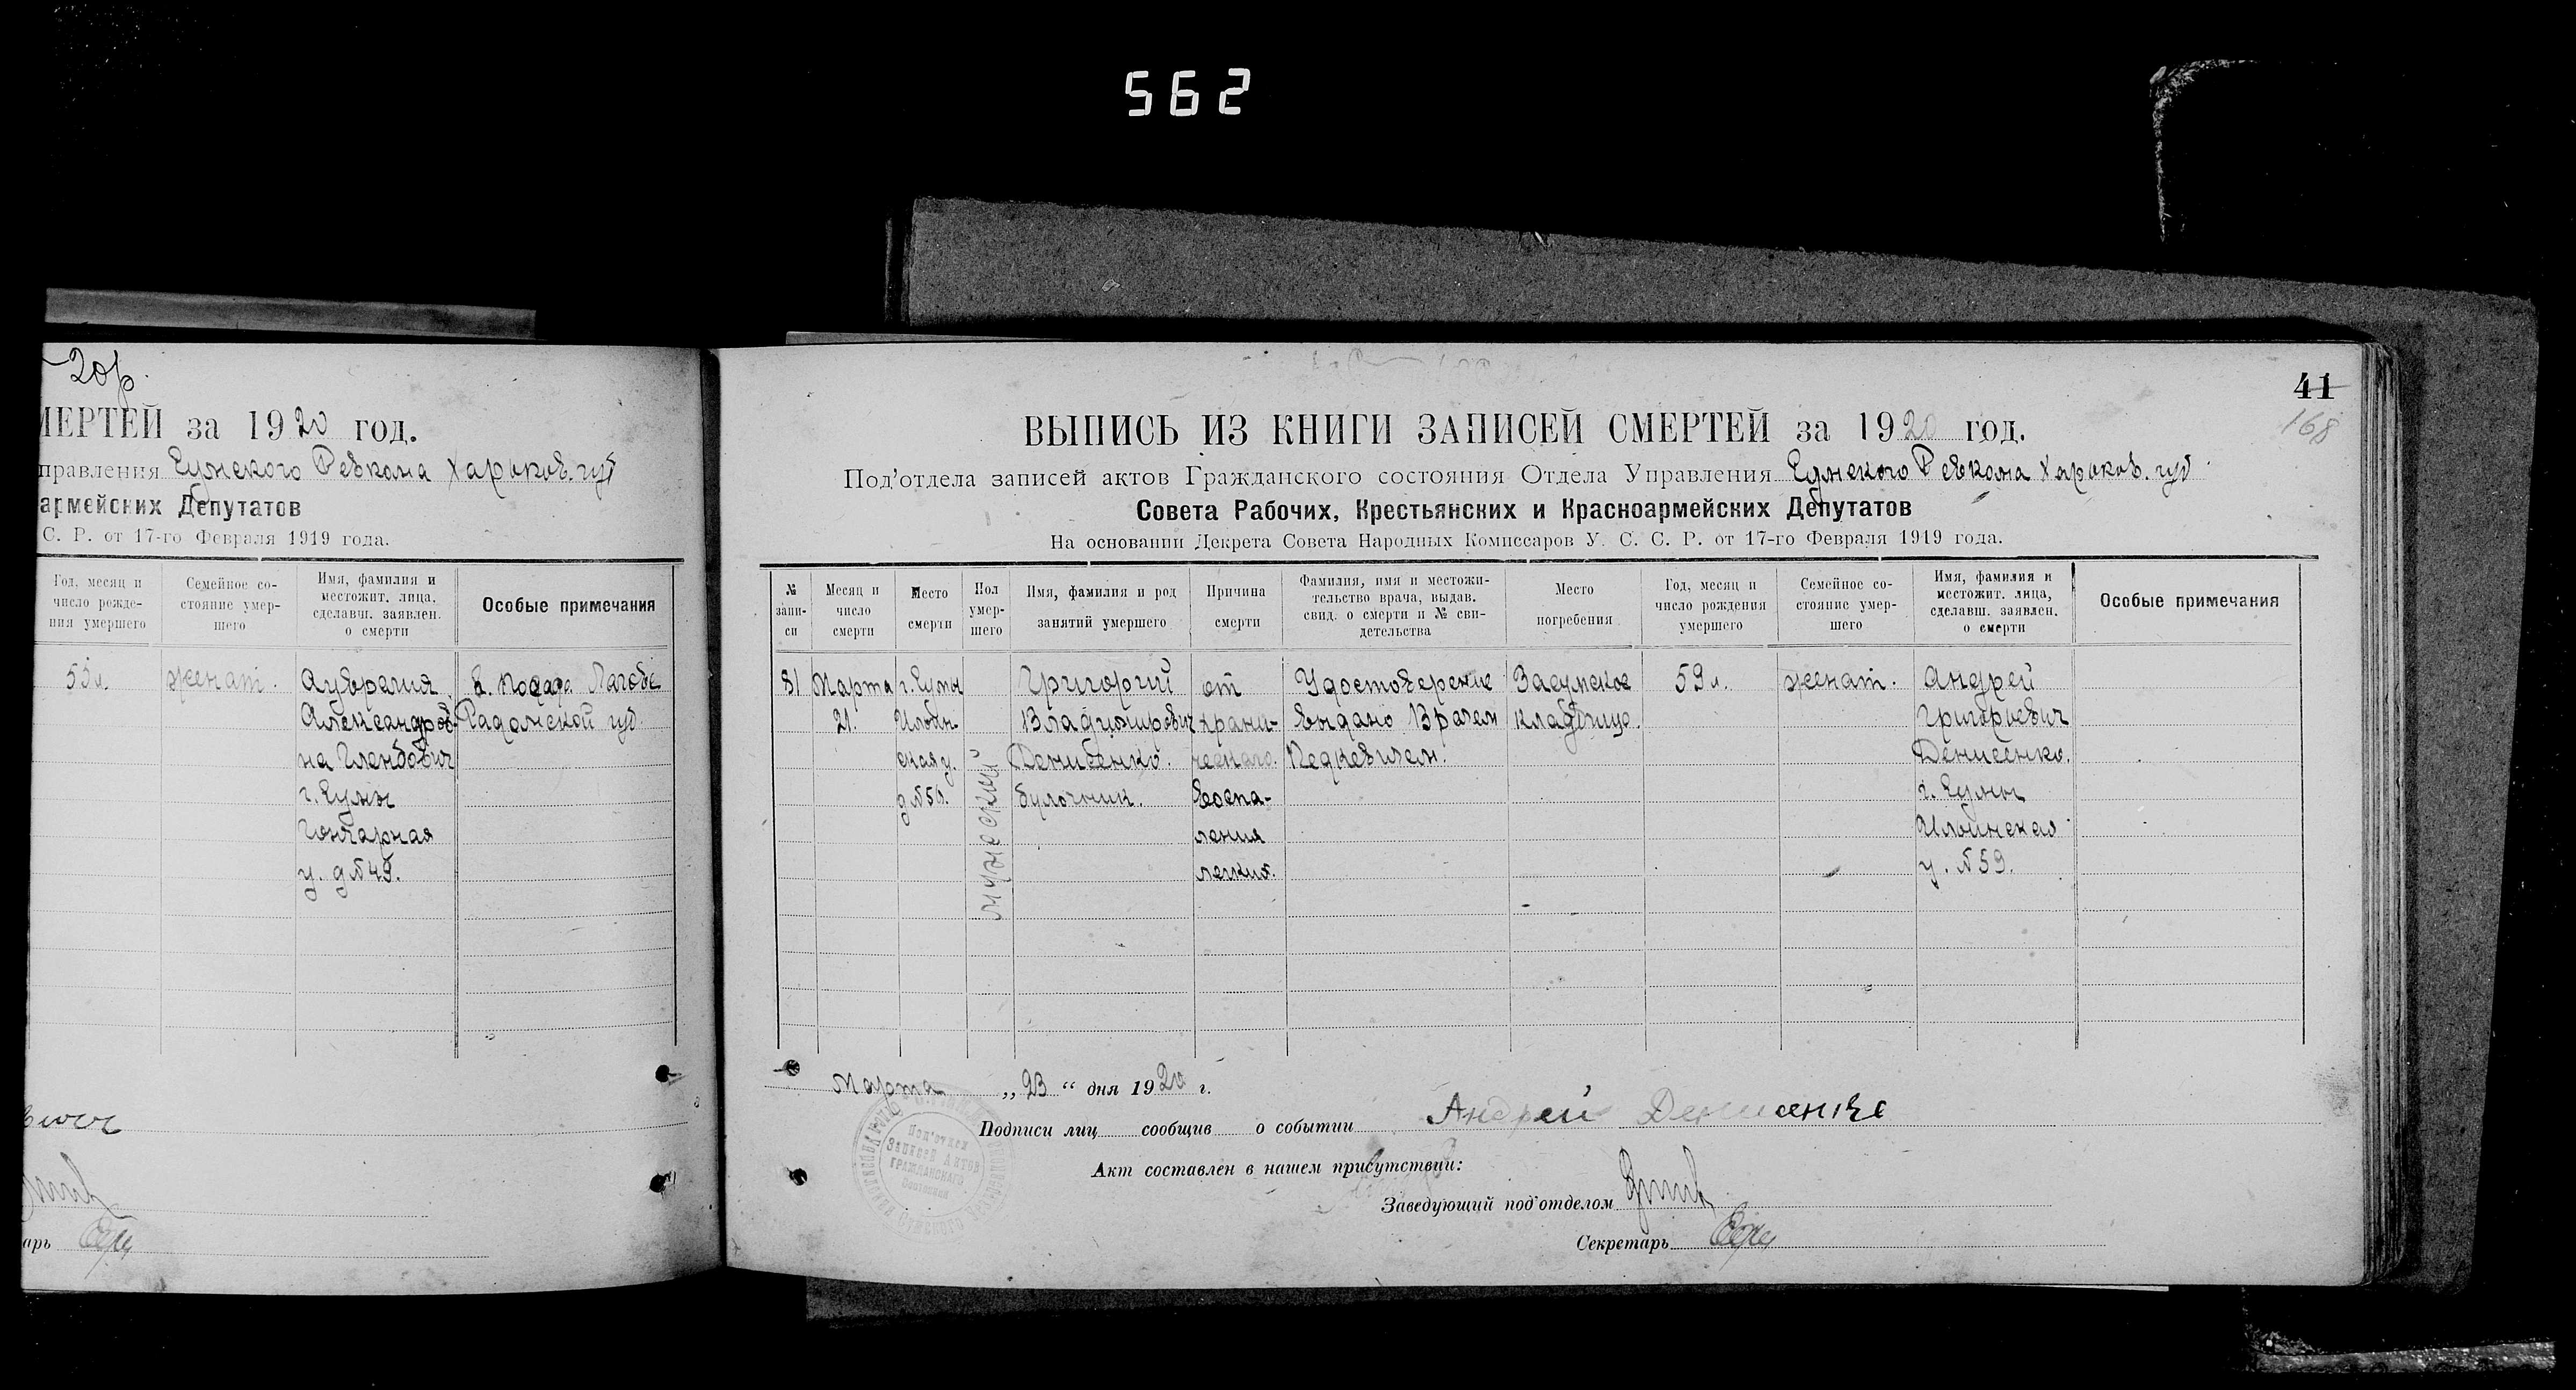 562
20р.
МЕРТЕЙ за 1920 год.
правления Сумского Ревкома Харьков. губ
армейских Депутатов
С. Р. от 17-го Февраля 1919 года.
Год, месяц и число рожде- ния умершего
Семейное со- стояние умер- шего
Имя, фамилия и местожит. лица. сделавш. заявлен. о смерти
Особые примечания
женат.
Александров-
на
г. Сумы
Гончарная
у. д№49.
Радомской губ.
арь
41
168
ВЫПИСЬ ИЗ КНИГИ ЗАПИСЕЙ СМЕРТЕЙ за 1920 год.
Под'отдела записей актов Гражданского состояния Отдела Управления Сумского Ревкома Харьков. губ
Совета Рабочих, Крестьянских и Красноармейских Депутатов
На основании Декрета Совета Народных Комиссаров У. С. С. Р. от 17-го Февраля 1919 года.
№ запи- си
Месяц и число смерти
Место смерти
Пол умер- шего
Имя, фамилия и род занятий умершего
Причина смерти
Фамилия, имя и местожи- тельство врача, выдав. свид. о смерти и № сви- детельства
Место погребения
Год, месяц и число рождения умершего
Семейное со- стояние умер- шего
Имя, фамилия и местожит. лица, сделавш. заявлен. о смерти
Особые примечания
81
Марта
21.
г. Сумы
Ильин-
ская у.
д№50.
мужеский
Григорий
Владимирович
Денисенко.
булочник.
от
хрони-
ческаго.
воспа-
ления
легких.
Удостоверение
выдано Врачем
Засумское
кладбище.
59 л.
женат.
Андрей
Григорьевич
Денисенко.
г. Сумы
Ильинская
у. №59.
Марта „23“ дня 1920 г.
Подписи лиц сообщив о событии Андрей Денисенко
Акт составлен в нашем присутствии:
Заведующий под'отделом
Секретарь